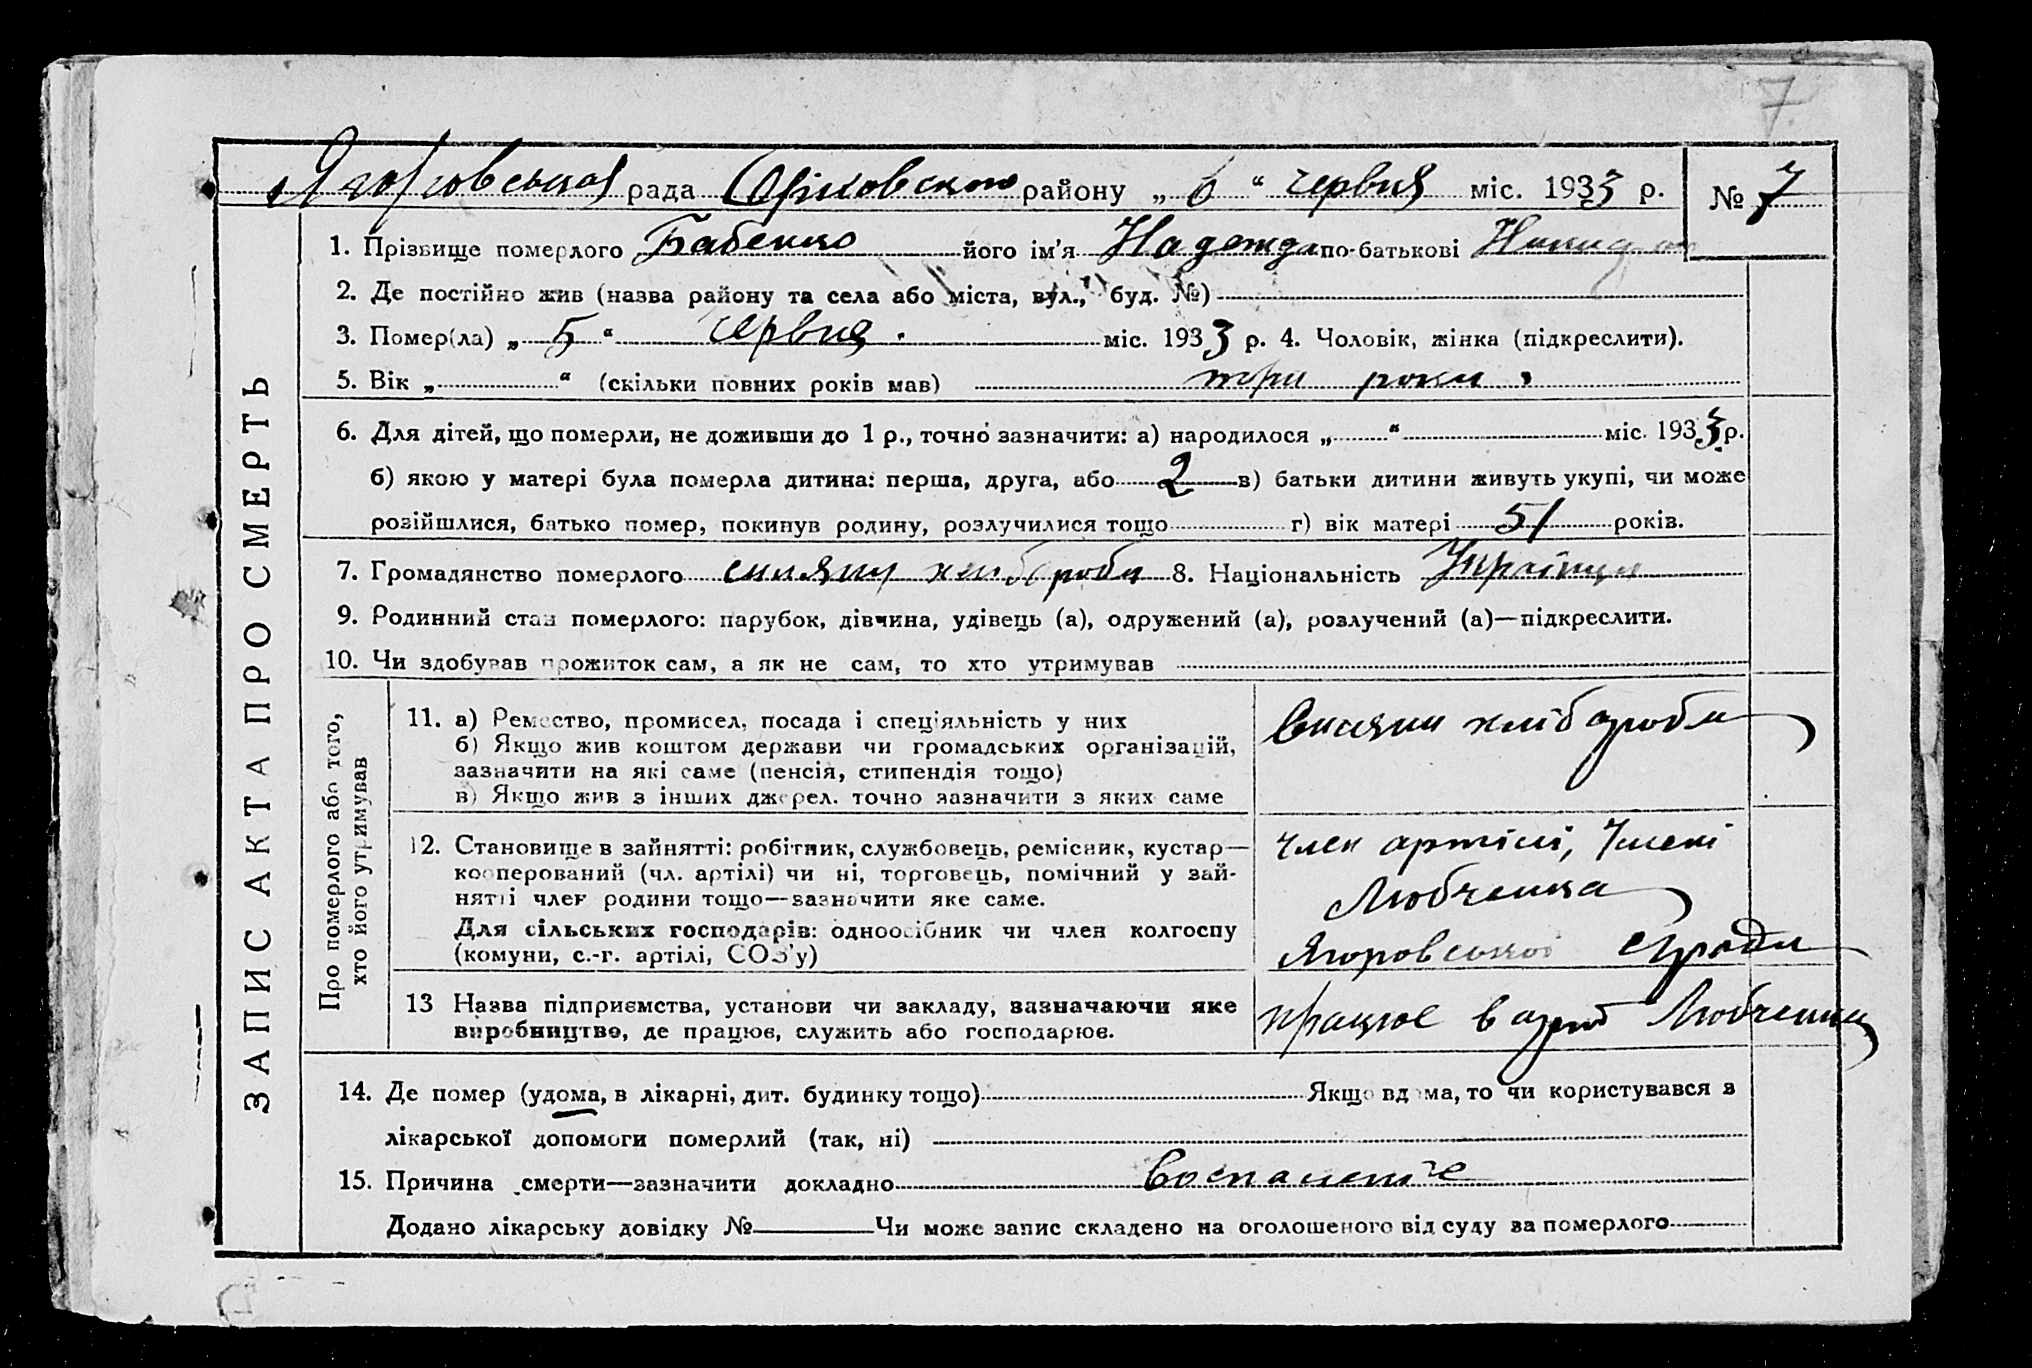 7
рада району „ 6 “ червня міс. 1933 р. № 7
ЗАПИС АКТА ПРО СМЕРТЬ
1. Прізвище померлого Бабенко його ім’я Надежда по-батькові
2. Де постійно жив (назва району та села або міста, вул., буд. №)
3. Помер(ла) „ 5 “ червня міс. 1933 р. 4. Чоловік, жінка (підкреслити).
5. Вік „ “ (скільки повних років мав) три роки
6. Для дітей, що померли, не доживши до 1 р., точно зазначити: а) народилося „ “ міс. 1933 р.
б) якою у матері була померла дитина: перша, друга, або 2 в) батьки дитини живуть укупі, чи може
розійшлися, батько помер, покинув родину, розлучилися тощо г) вік матері 51 років.
7. Громадянство померлого хліборобы 8. Національність Українця
9. Родинний стан померлого: парубок, дівчина, удівець (а), одружений (а), розлучений (а)—підкреслити.
10. Чи здобував прожиток сам, а як не сам, то хто утримував
Про померлого або того,
хто його утримував
11. а) Ремество, промисел, посада і спеціяльність у них
б) Якщо жив коштом держави чи громадських організацій,
зазначити на які саме (пенсія, стипендія тощо)
в) Якщо жив з інших джерел, точно зазначити з яких саме
хлібороби
12. Становище в зайнятті: робітник, службовець, ремісник, кустар—
кооперований (чл. артілі) чи ні, торговець, помічний у зай-
нятті член родини тощо—зазначити яке саме.
Для сільських господарів: одноосібник чи член колгоспу
(комуни, с.-г. артілі, СОЗ’у)
член артілі, Імені
Любченка
13 Назва підприємства, установи чи закладу, зазначаючи яке
виробництво, де працює, служить або господарює.
працює в Любченка
14. Де помер (удома, в лікарні, дит. будинку тощо) Якщо вдома, то чи користувався з
лікарської допомоги померлий (так, ні)
15. Причина смерти—зазначити докладно Воспаленіе
Додано лікарську довідку № Чи може запис складено на оголошеного від суду за померлого